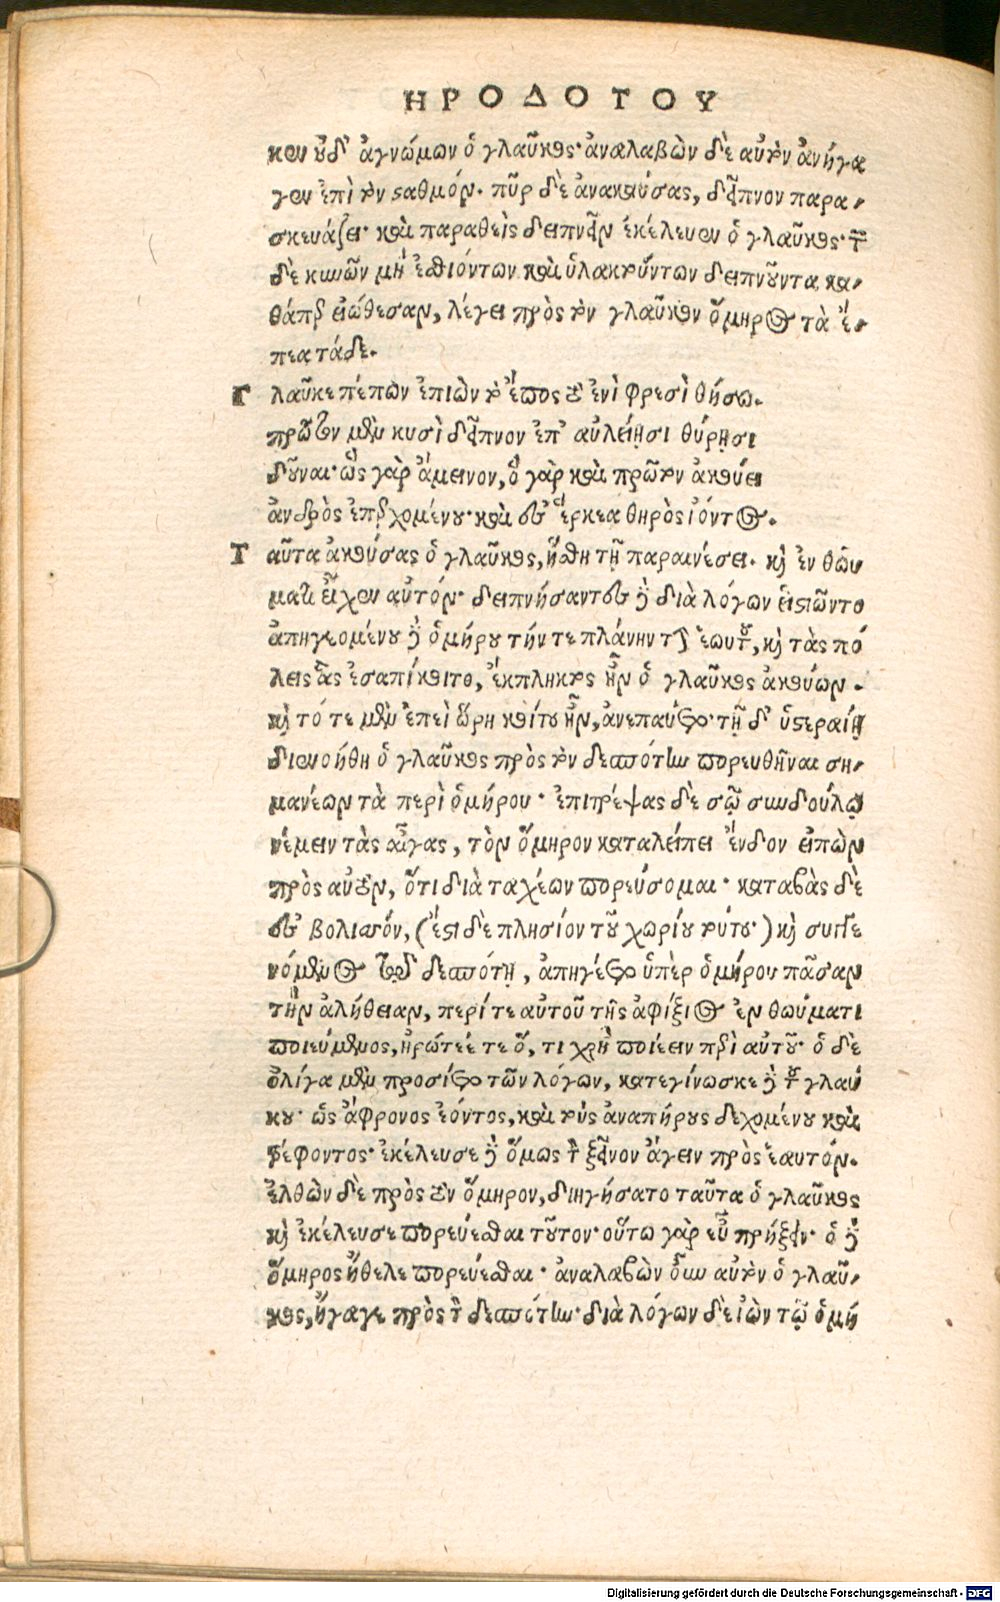 ΗΡΟΔΟΤΟΥ
κεν οὐδ' ἀγνώμων ὁ γλαῦκος· ἀναλαβὼν δὲ αὐτὸν ἀνήγα
γεν ἐπὶ τὸν σαθμόν. πῦρ δὲ ἀνακαύσας, δεῖπνον παρα-
σκευάζει· καὶ παραθεὶς δειπνεῖν ἐκέλευεν ὁ γλαῦκος· τῶν
δὲ κυνῶν μὴ ἐσθιόντων καὶ ὑλακτούντων δειπνοῦντα κα-
θάπερ εἰώθεσαν, λέγει πρὸς τὸν γλαῦκον ὅμηρος τὰ ἔ-
πεα τάδε.
Γλαῦκε πέπων ἐπιὼν τὸ ἔπος τοι ἐνὶ φρεσὶ θήσω.
πρῶτον μὲν κυσὶ δεῖπνον ἐπ' αὐλείῃσι θύρῃσι
δοῦναι· ὣς γὰρ ἄμεινον, ὃ γὰρ καὶ πρῶτον ἀκούει
ἀνδρὸς ἐπερχομένου· καὶ ἐς ἕρκεα θηρὸς ἰόντος.
Ταῦτα ἀκούσας ὁ γλαῦκος, ἥσθη τῇ παραινέσει. καὶ ἐν θώυ
ματι εἶχεν αὐτόν· δειπνήσαντες δὲ διὰ λόγων εἱστιῶντο
ἀπηγεομένου δὲ ὁμήρου τήν τε πλάνην τὴν ἑωυτοῦ, καὶ τὰς πό
λεις ἃς ἐσαπίκοιτο, ἔκπληκτος ἦν ὁ γλαῦκος ἀκούων.
καὶ τότε μὲν ἐπεὶ ὥρη κοίτου ἦν, ἀνεπαύετο· τῇ δ' ὑστεραίῃ
διενοήθη ὁ γλαῦκος πρὸς τὸν δεσπότην πορευθῆναι ση-
μανέων τὰ περὶ ὁμήρου· ἐπιτρέψας δὲ τῷ συνδούλῳ
νέμειν τὰς αἶγας, τὸν ὅμηρον καταλείπει ἔνδον εἰπὼν
πρὸς αὐτὸν, ὅτι διὰ ταχέων πορεύσομαι· καταβὰς δὲ
ἐς βολισσόν, (ἔστι δὲ πλησίον τοῦ χωρίου τούτου·) καὶ συγγε
νόμενος τῷ δεσπότῃ, ἀπηγέετο ὑπὲρ ὁμήρου πᾶσαν
τὴν ἀλήθειαν, περί τε αὐτοῦ τῆς ἀφίξιος ἐν θωύματι
ποιεύμενος, ἠρώτεέ τε ὅ, τι χρὴ ποιέειν περὶ αὐτοῦ· ὁ δὲ
ὀλίγα μὲν προσίετο τῶν λόγων, κατεγίνωσκε δὲ τοῦ γλαύ
κου· ὡς ἄφρονος ἐόντος, καὶ τοὺς ἀναπήρους δεχομένου καὶ
τρέφοντος· ἐκέλευσε δὲ ὅμως τὸν ξεῖνον ἄγειν πρὸς ἑαυτόν.
ἐλθὼν δὲ πρὸς τὸν ὅμηρον, διηγήσατο ταῦτα ὁ γλαῦκος
καὶ ἐκέλευσε πορεύεσθαι τοῦτον· οὕτω γὰρ εὖ πρήξειν· ὁ δὲ
ὅμηρος ἤθελε πορεύεσθαι· ἀναλαβὼν οὖν αὐτὸν ὁ γλαῦ-
κος, ἤγαγε πρὸς τὸν δεσπότην· διὰ λόγων δὲ ἰὼν τῷ ὁμή
Digitalisierung gefördert durch die Deutsche Forschungsgemeinschaft - DFG